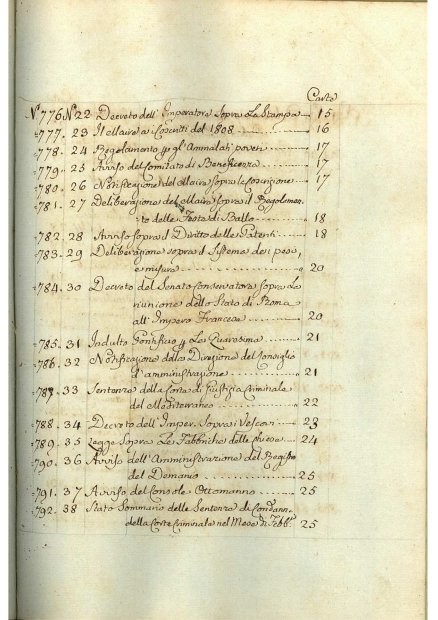 Carte
N.776. N.22 Decreto dell' Imperatore Sopra La Stampa 15
777. 23 Il Maire a Coscritti del 1808 16
778. 24 Regolamento gl' Ammalati poveri 17
779. 25 Avviso del Comitato di Beneficenza 17
780. 26 Notificazione del Maire sopra le Coscrizione 17
781. 27 Deliberazione del Maire sopra il Regolamen-
to delle Festa di Ballo 18
782. 28 Avviso sopra il Diritto delle Patenti 18
783. 29 Deliberazione sopra il Sistema dei pesi,
e misure 20
784. 30 Decreto del Senato Conservatore sopra La
riunione dello Stato di Roma
all' Impero Francese 20
785. 31 Indulto Pontificio Le Quaresima 21
786. 32 Notificazione della Direzione del Consiglio
d'amministrazione 21
787. 33 Sentenza della Corte di Giustizia Criminale
del Mediterraneo 22
788. 34 Decreto dell' Imper. Sopra i Vescovi 23
789. 35 Legge Sopra Le Fabbriche delle Chiese 24
790. 36 Avviso dell' Amministrazione del Registro
del Demanio 25
791. 37 Avviso del Console Ottomanno 25
792. 38 Stato Sommario delle Sentenze di Condann.
della Corte Criminale nel Mese di Febb. 25